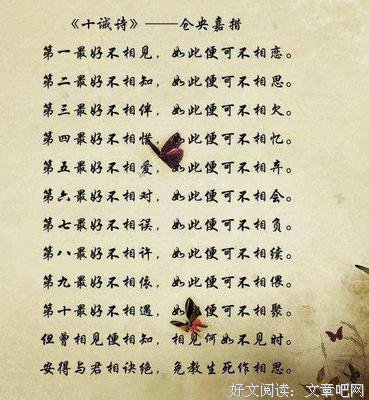 《十诫诗》——仓央嘉措
第一最好不相见，如此便可不相恋。
第二最好不相知，如此便可不相思。
第三最好不相伴，如此便可不相欠。
第四最好不相惜，如此便可不相忆。
第五最好不相爱，如此便可不相弃。
第六最好不相对，如此便可不相会。
第七最好不相误，如此便可不相负。
第八最好不相许，如此便可不相续。
第九最好不相依，如此便可不相偎。
第十最好不相遇，如此便可不相聚。
但曾相见便相知，相见何如不见时。
安得与君相诀绝，免教生死作相思。
好文阅读：文章吧网